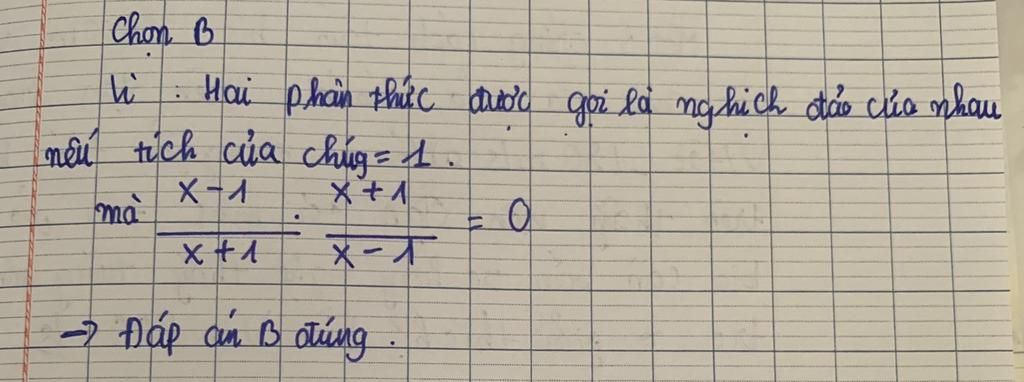 Chọn B
Vì : Hai phân thức được gọi là nghịch đảo của nhau
nếu tích của chúg = 1 .
mà \frac{x-1}{x+1} . \frac{x+1}{x-1} = 0
→ Đáp án B đúng .